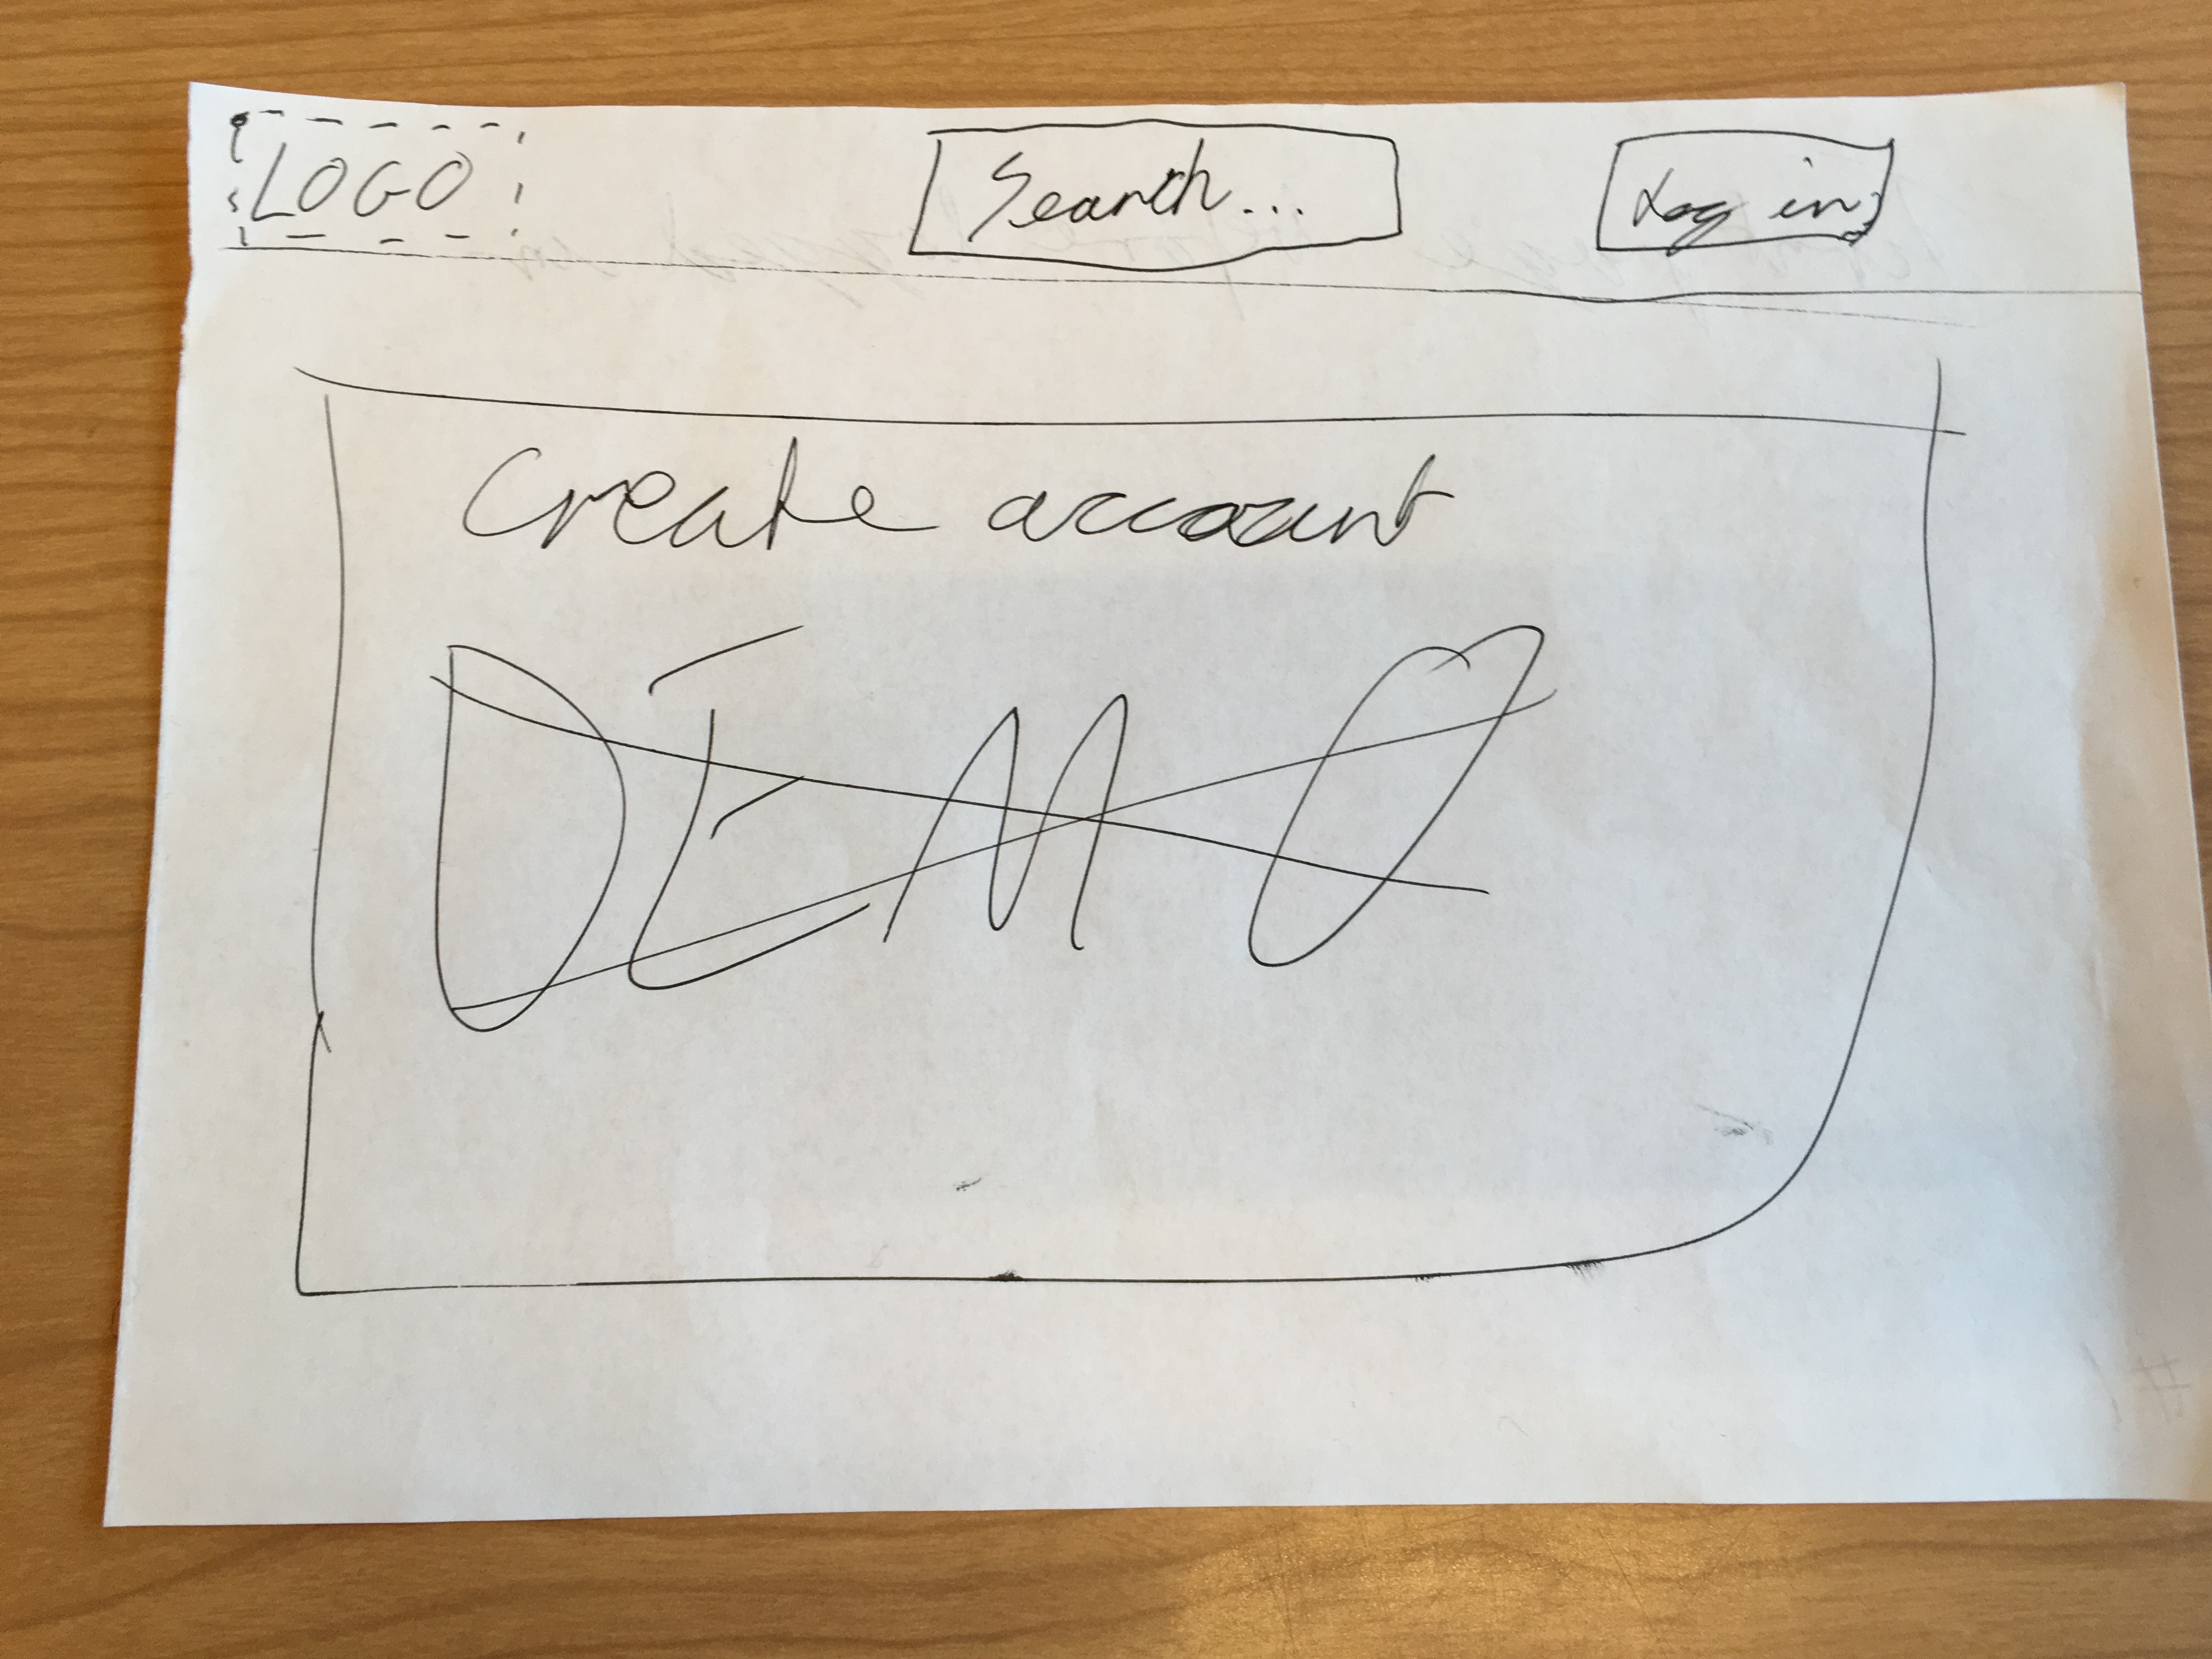 LOGO
Search...
Log in
Create account
DEMO